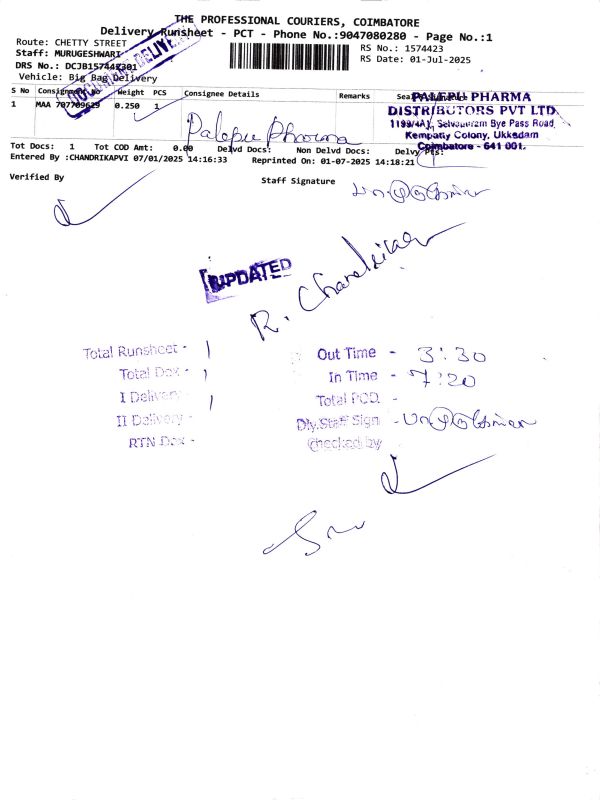 THE PROFESSIONAL COURIERS, COIMBATORE
Delivery Runsheet - PCT - Phone No.:9047080280 - Page No.:1
Route: CHETTY STREET
RS No.: 1574423
Staff: MURUGESHWARI
RS Date: 01-Jul-2025
DRS No.: DCJB15744
Vehicle: Big Bag Delivery
S No Consignment No Weight PCS Consignee Details Remarks
1 MAA 707709629 0.250 1
Palepu Pharma
PALEPU PHARMA
DISTRIBUTORS PVT LTD
1199/4A1, Selvapuram Bye Pass Road,
Kempatty Colony, Ukkadam
Coimbatore - 641 001.
Tot Docs: 1 Tot COD Amt: 0.00 Delvd Docs: Non Delvd Docs: Delvy Pts:
Entered By :CHANDRIKAPVI 07/01/2025 14:16:33 Reprinted On: 01-07-2025 14:18:21
Verified By
Staff Signature
UPDATED
Total Runsheet - 1
Out Time - 3:30
Total Dox - 1
In Time - 7:20
I Delivery - 1
Total POD -
II Delivery -
Dly.Staff Sign -
RTN Dox -
Checked by